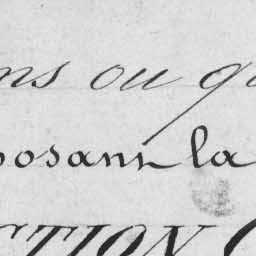 ns ou qu
posant la
CTION C